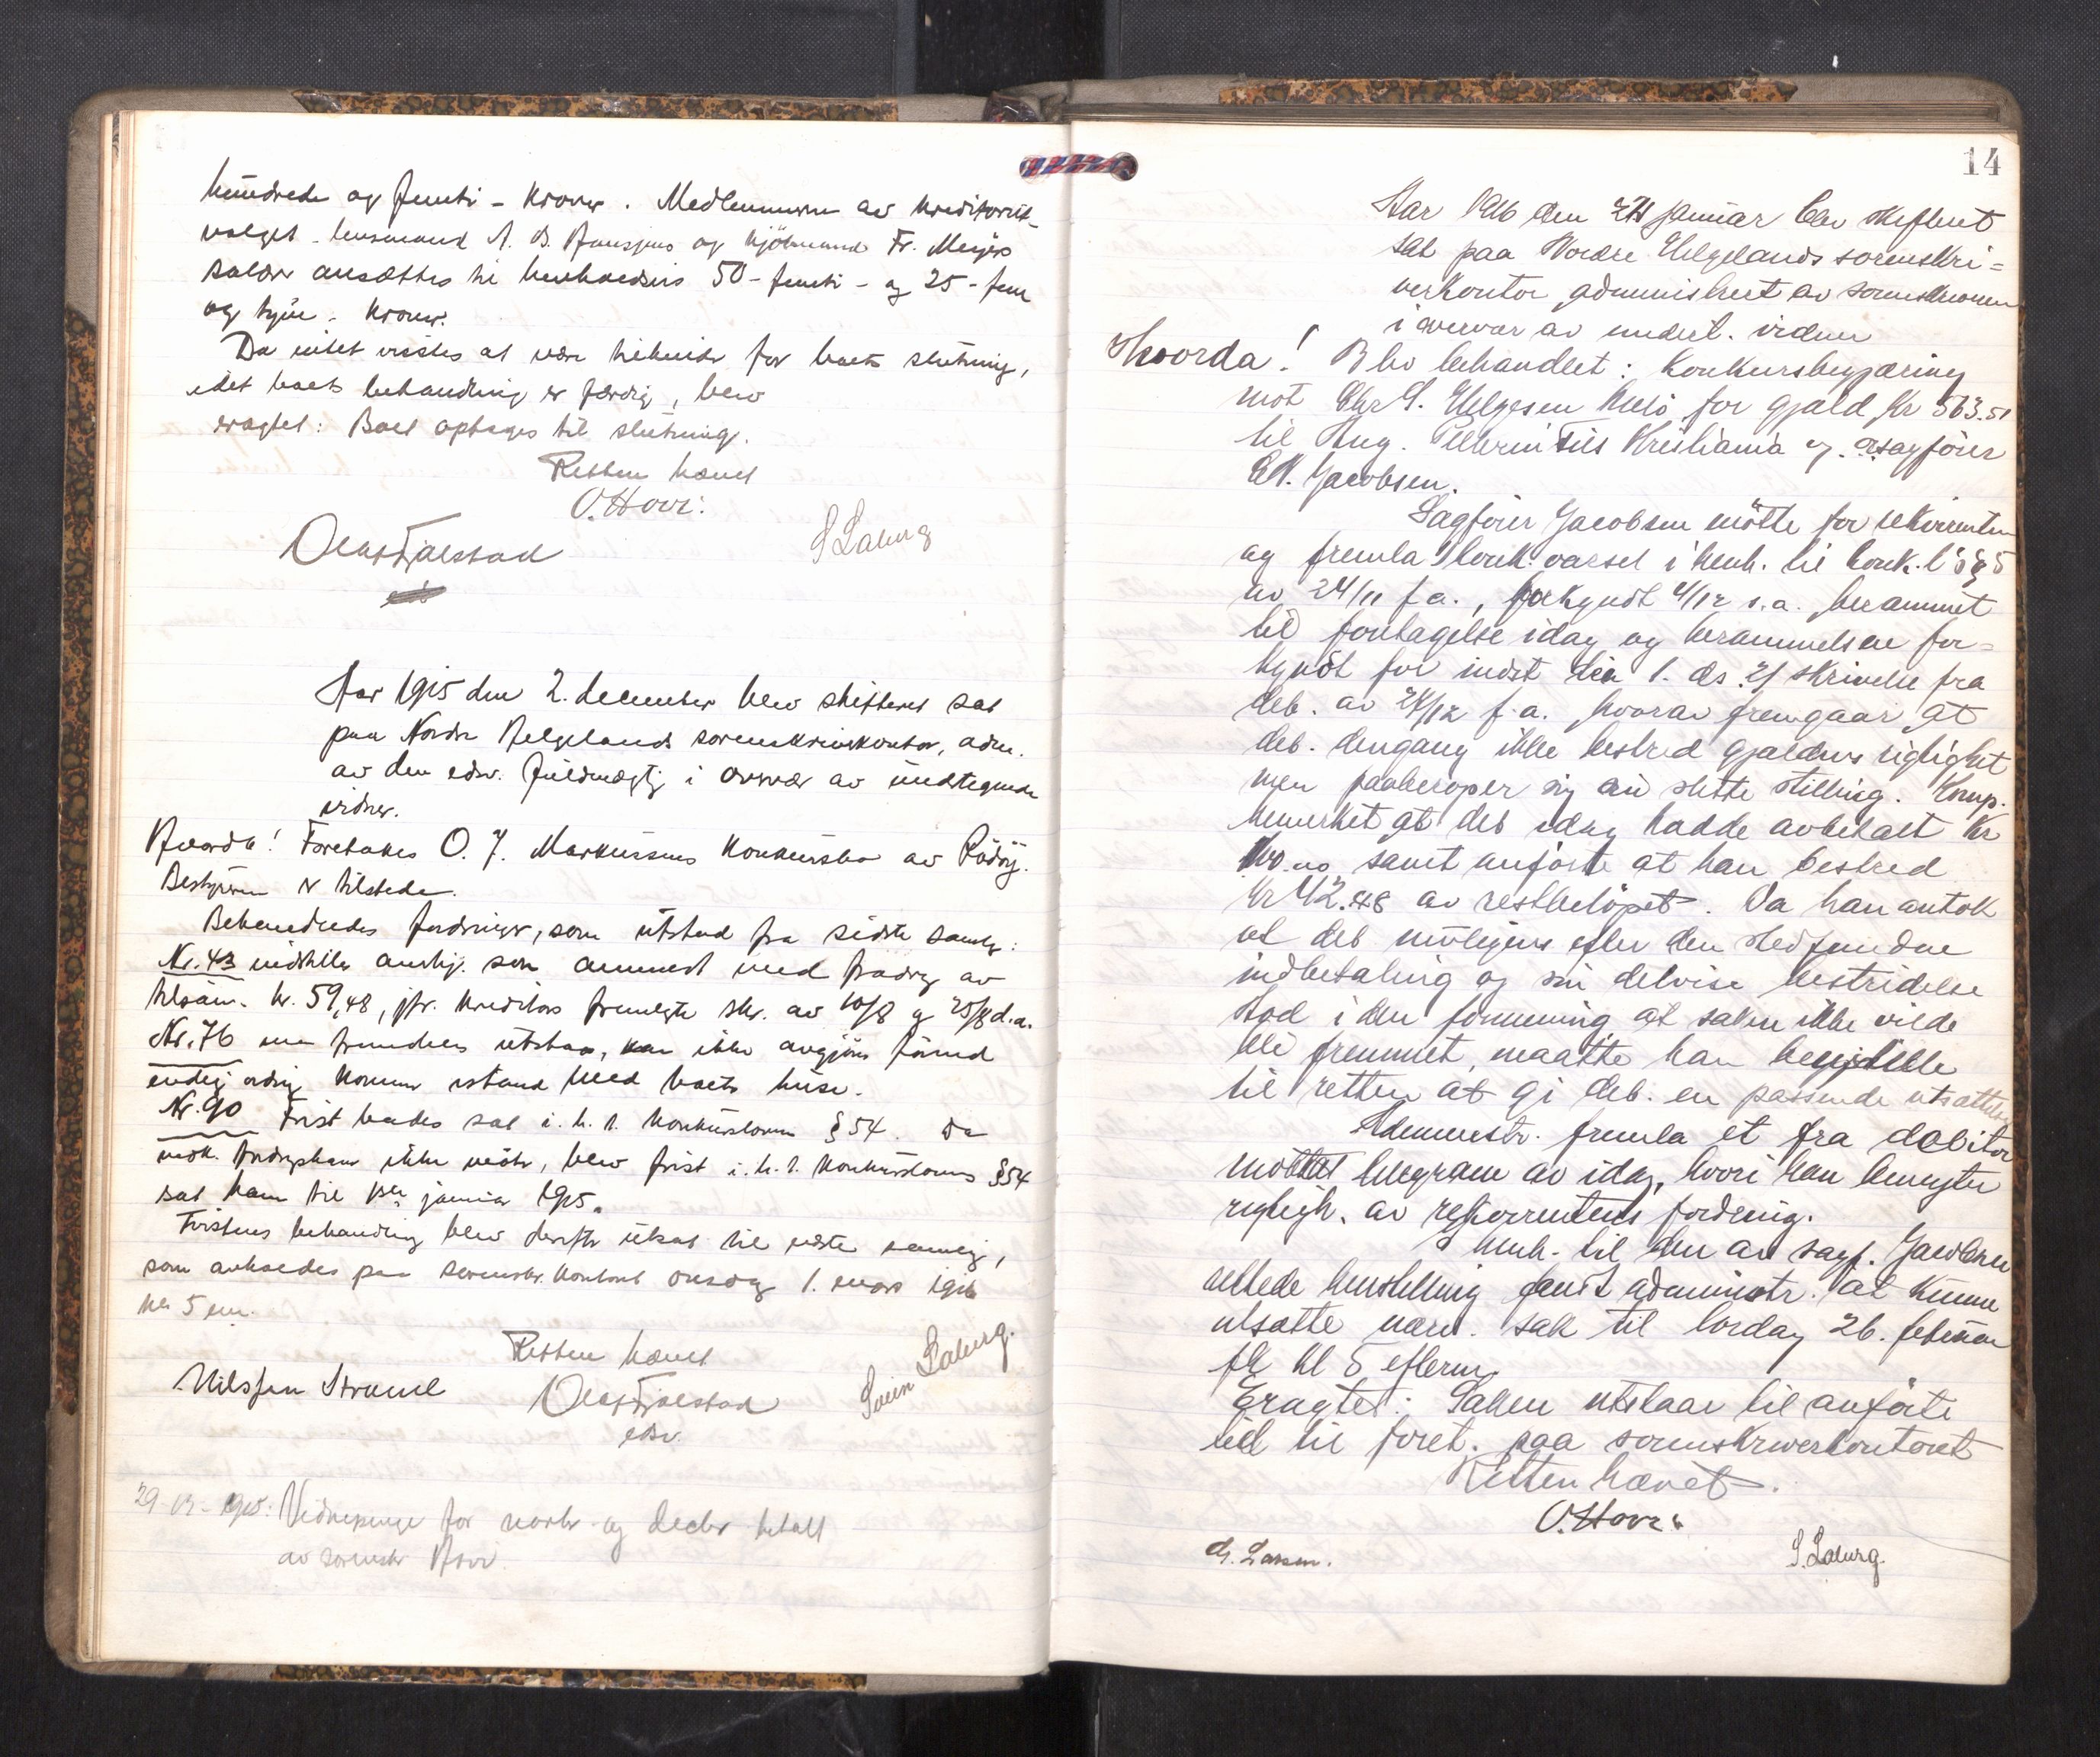 hundrede og femti - kroner. Medlemmerne av kreditorut-
valget lensmand A. B. og kjöbmand Fr. Meyers
salær ansættes til henholdsvis 50 - femti - og 25 - fem
og tyve - kroner.
Da intet vistes at være til hinder for boets slutning,
idet boets behandling er færdig, blev
eragtet: Boet optages til slutning.
Retten hævet
O. Hovr:
Olaf Fjalstad
S Laburg
Aar 1915 den 2. december blev skifteret sat
paa Nordre Helgelands sorenskriverkontor, adm.
av den edsv. fuldmægtig i overvær av undertegnede
vidner.
Hvorda! Foretokes O. J. Markussens konkursbo av Rödöy.
Bestyreren er tilstede.
Behandledes fordringer, som utstod fra sidste samling:
Nr. 43 indstilles som anmeldt med fradrag av
kr. 59,48, jfr. kreditors fremlagte skr. av 10/8 og 25/8 d.a.
Nr. 76 maa fremdeles utstaa, kan ikke avgjöres förend
endelig ordning kommer istand med boets huse.
Nr. 90 Frist bedes sat i. h. t. konkursloven § 54. Da
ikke möter, blev frist i. h. t. konkurslovens § 54
sat ham til 1ste januar 1915.
Tvistens behandling blev derefter utsat til næste samling,
som avholdes paa sorenskr. kontoret onsdag 1. mars 1916
kl. 5 em.
Retten hævet
Nils Jen Straml
Olaf Fjalstad
edsv.
Svein Laburg.
29-12-1915: Vidnepenge for novbr og decbr betalt
av sorenskr Hovr
14
Aar 1916 den 24 januar blev skifteret
sat paa Nordre Helgelands sorenskri=
verkontor administreret av sorenskriveren
i overvær av undert. vidner
Hvorda! Blev behandlet: Konkursbegjæring
mot Chr S. Helgesen Melö for gjæld kr 563.51
til Aug. Pellerin Fils Kristiania v/ o.r.sagförer
E. K. Jacobsen.
Sagförer Jacobsen mötte for rekvirenten
og fremla konk. varsel i henh. til konk. l's § 5
av 24/11 f.a., forkyndt 4/12 s.a. berammet
til foretagelse idag og berammelsen for=
kyndt for indst den 1. ds. 2/ skrivelse fra
deb. av 24/12 f.a. hvorav fremgaar at
deb. dengang ikke bestred gjældens rigtighet
men paaberoper sig sin slette stilling. Komp.
bemerket at deb idag hadde avbetalt kr
samt anförte at han bestred
kr 42.48 av restbelöpet. Da han antok
at deb muligens efter den stedfundne
indbetaling og sin delvise bestridelse
stod i den formening at saken ikke vilde
bli fremmet, maatte han henstille
til retten at gi deb. en passende utsættelse
Administr. fremla et fra debitor
mottat telegram av idag, hvori han benegter
rigtigh. av rekvirentens fordring.
I henh. til den av sagf. Jacobsen
rettede henstilling fandt administr. at kunne
utsætte nærv. sak til lördag 26. februar
fk kl 5 efterm
Eragtet: Saken utstaar til anförte
tid til foret. paa sorenskriverkontoret
Retten hævet.
O. Hovr:
G. Larsen.
S. Laburg.